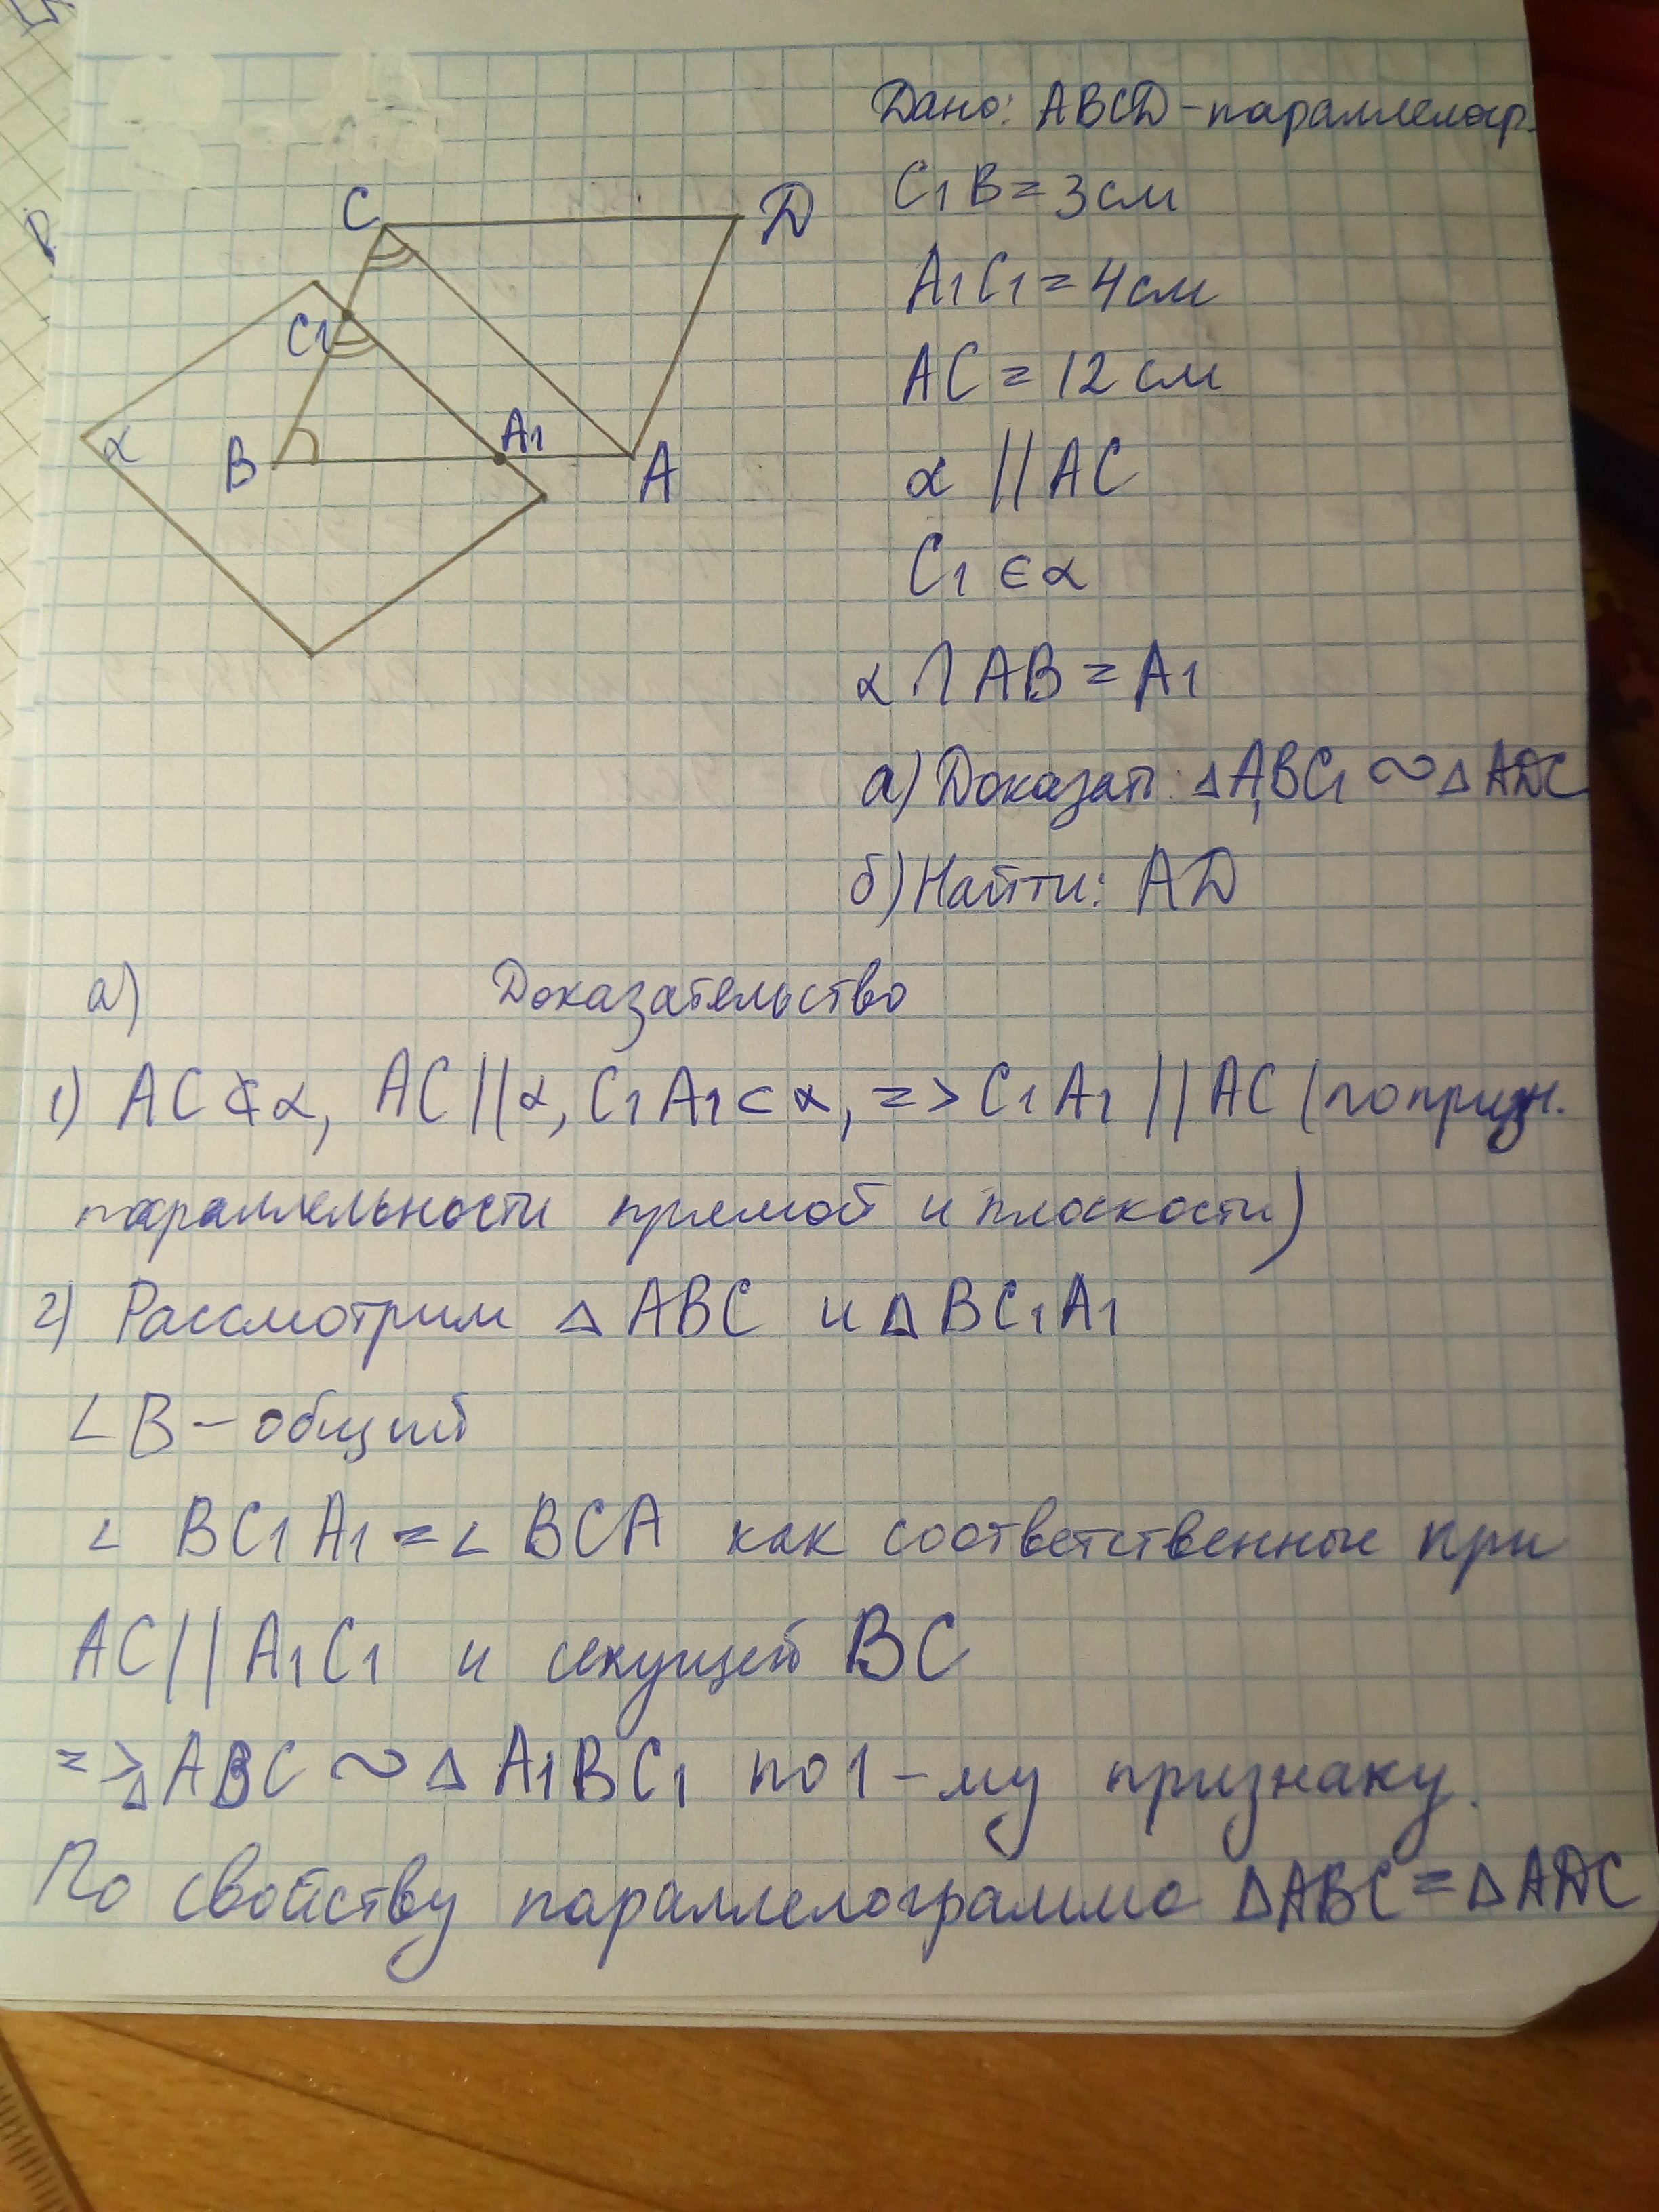 Дано: ABCD-параллелогр.
C1B=3см
A1C1=4см
AC=12см
α||AC
C1∈α
α∩AB=A1
а) Доказать: △A1BC1∾△ADC
б) Найти: AD
C
D
C1
A1
α
B
A
а) Доказательство
1) AC⊄α, AC||α, C1A1⊂α, => C1A1||AC (по призн.
параллельности прямой и плоскости)
2) Рассмотрим △ABC и △BC1A1
∠B-общий
∠BC1A1=∠BCA как соответственные при
AC||A1C1 и секущей BC
=> △ABC∾△A1BC1 по 1-му признаку.
По свойству параллелограмма △ABC=△ADC